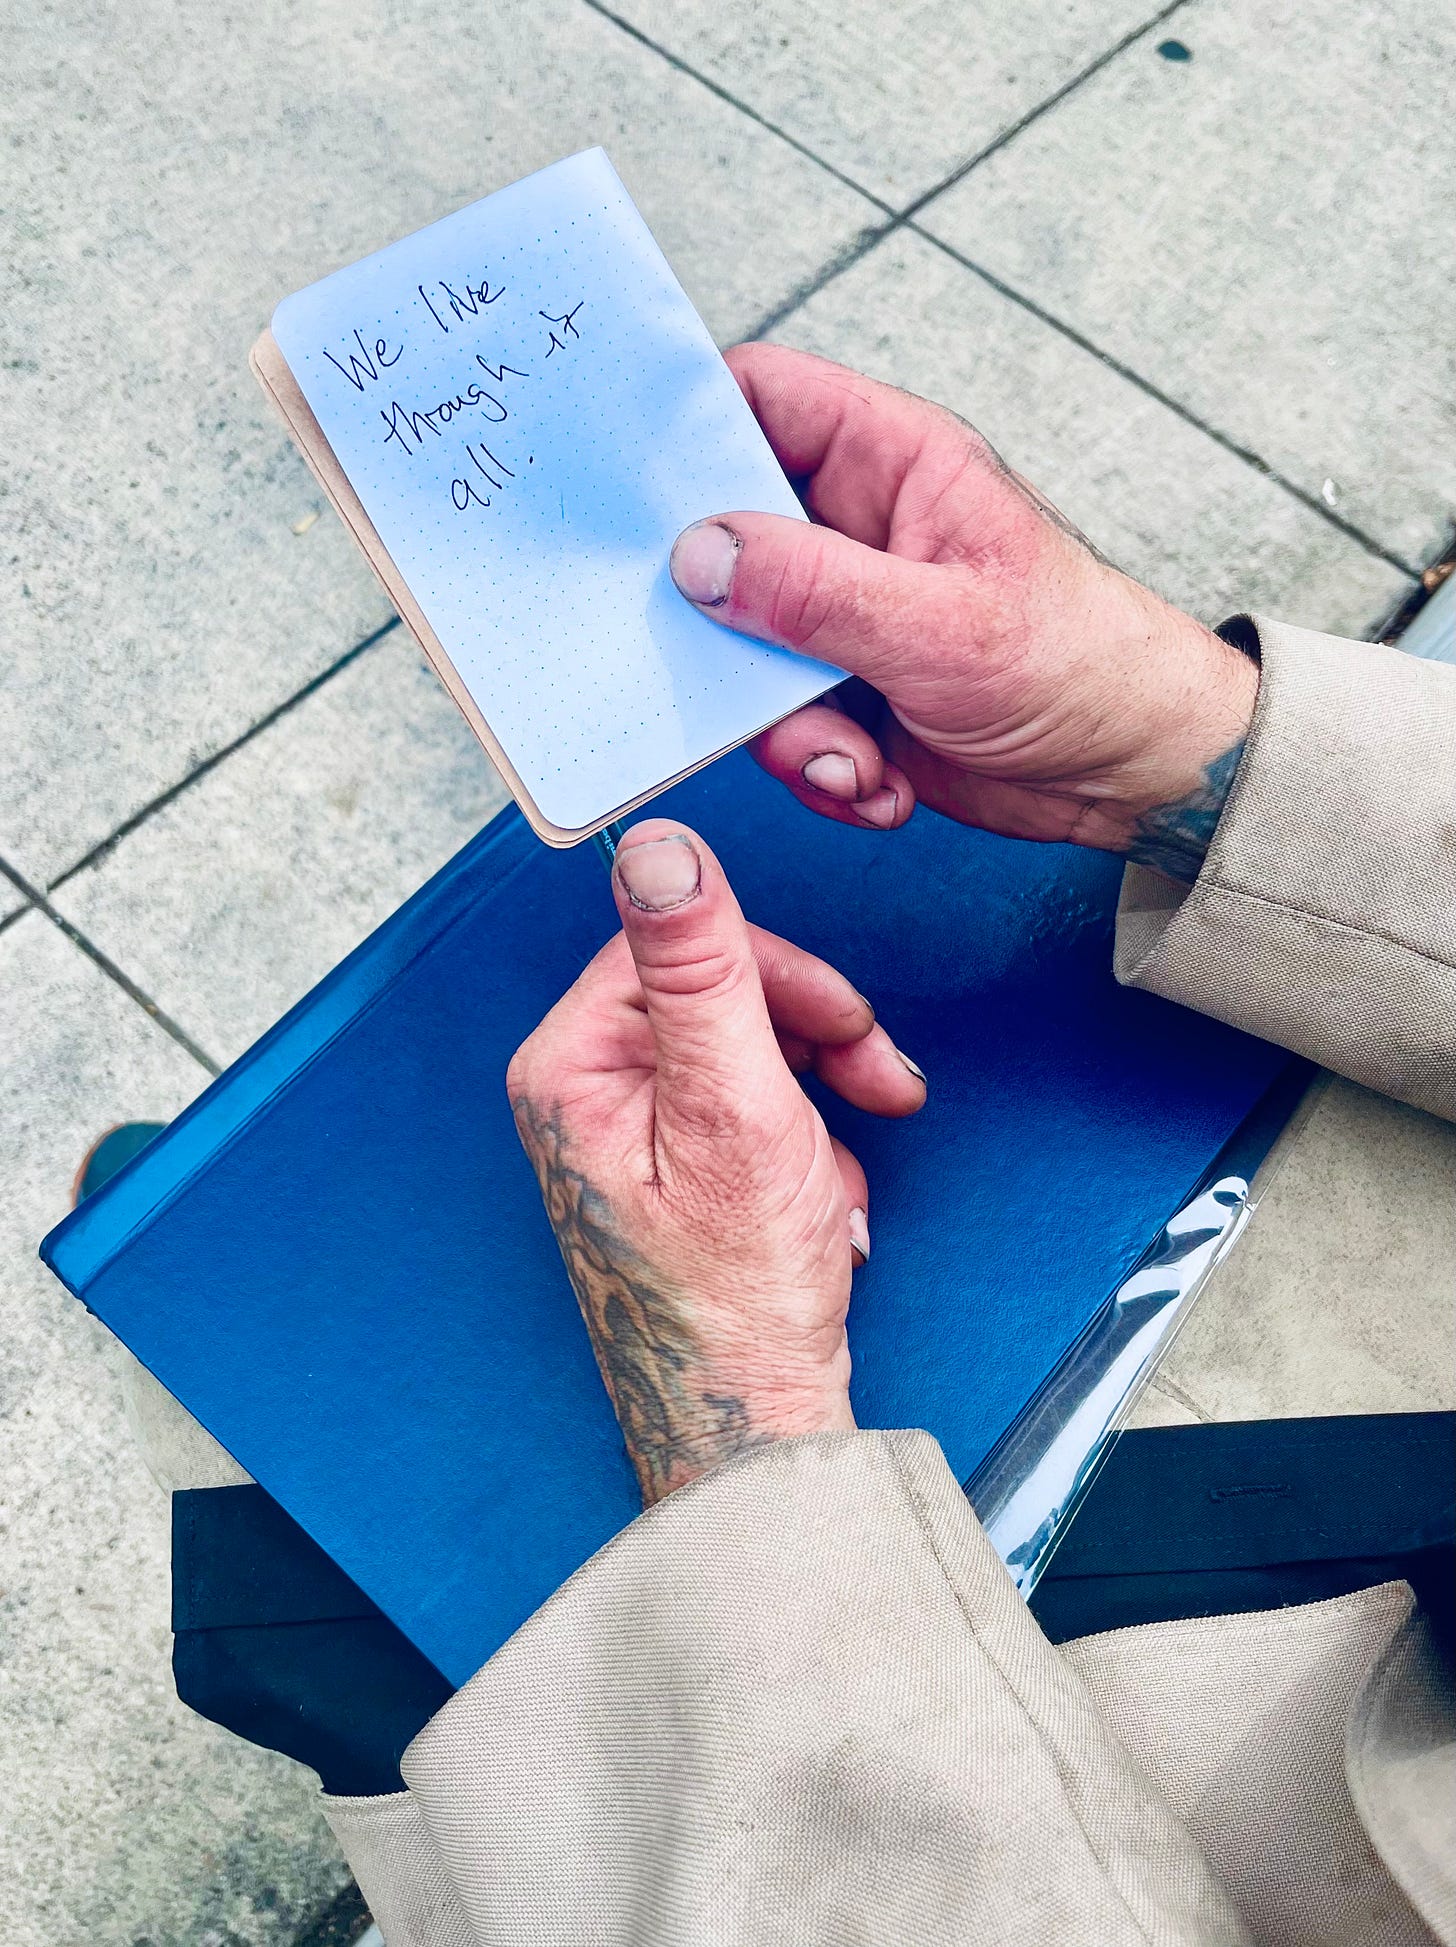 We live
through it
all.